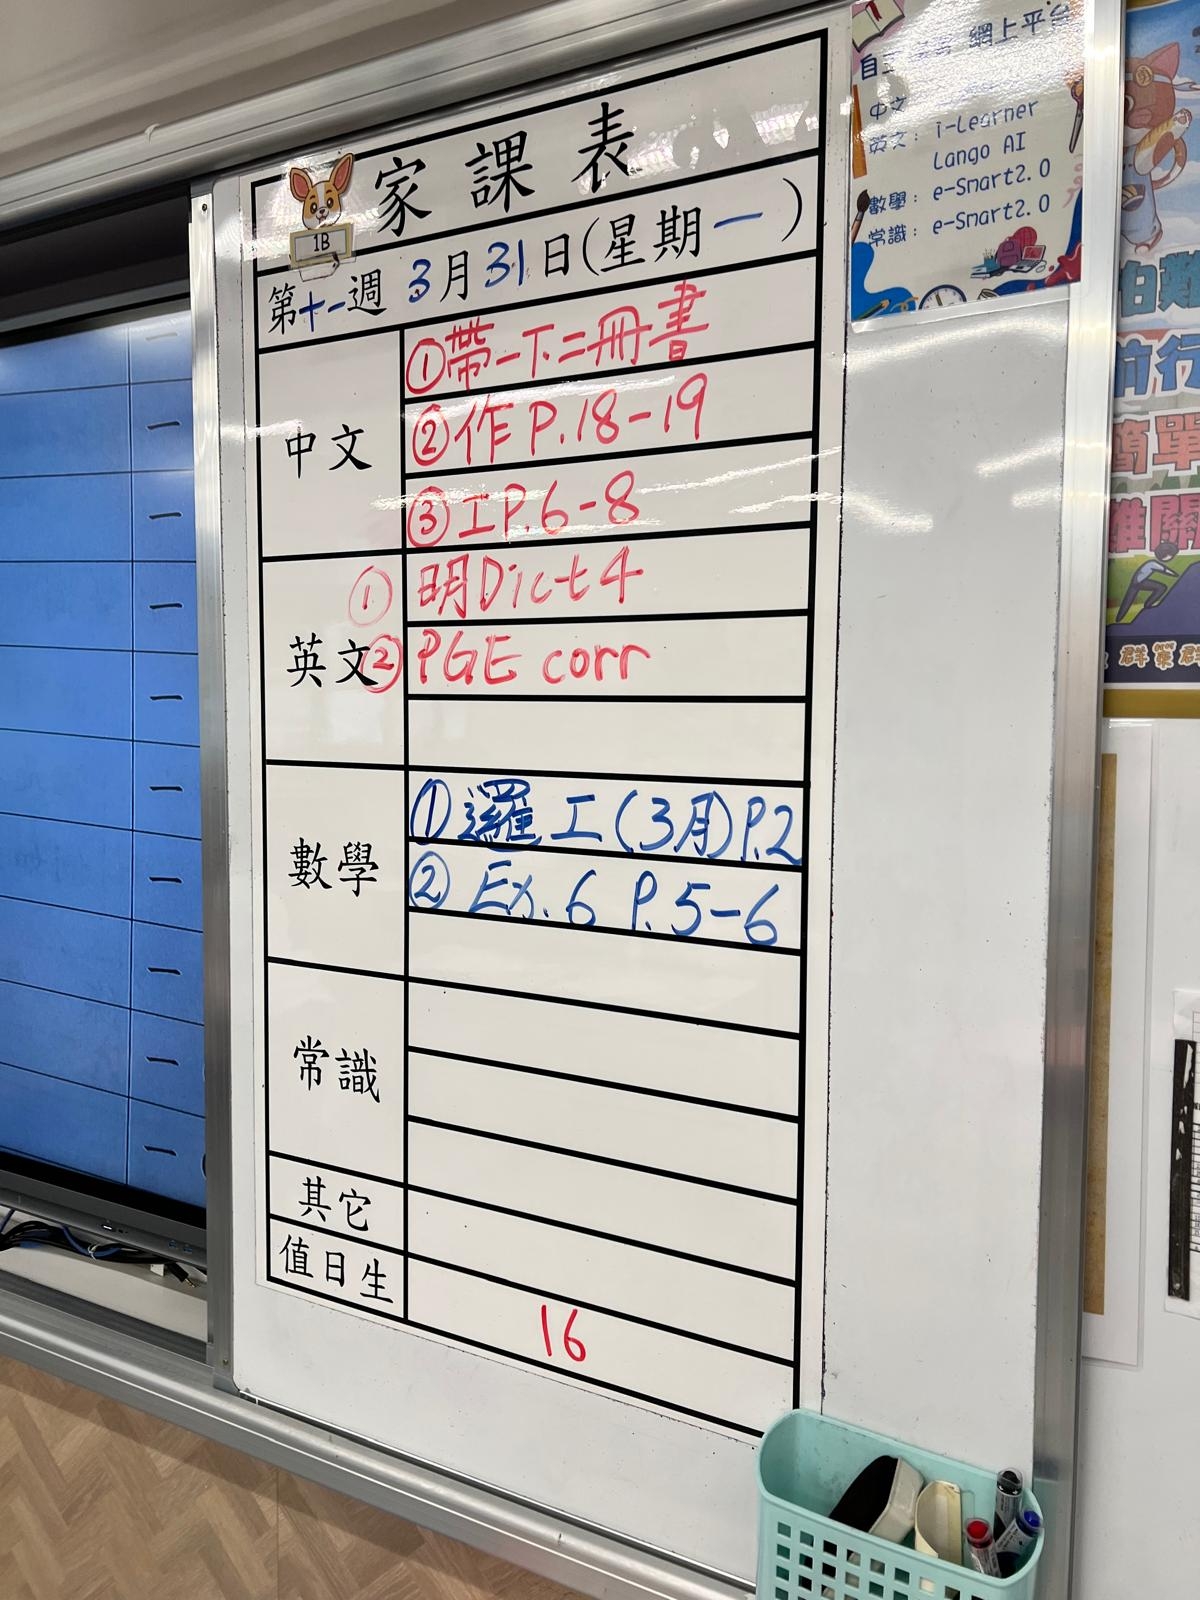 家課表
1B
第十一週 3月31日(星期一)
中文
①帶一下二冊書
②作 P.18-19
③工P.6-8
英文
① 明Dict 4
② PGE corr
數學
①邏工(3月)P.2
② Ex. 6 P.5-6
常識
其它
值日生
16
網上平台
中文
英文: i-Learner
Lango AI
數學: e-Smart2.0
常識: e-Smart2.0
前行
簡單
難關
一
一
一
一
一
一
一
一
一
一